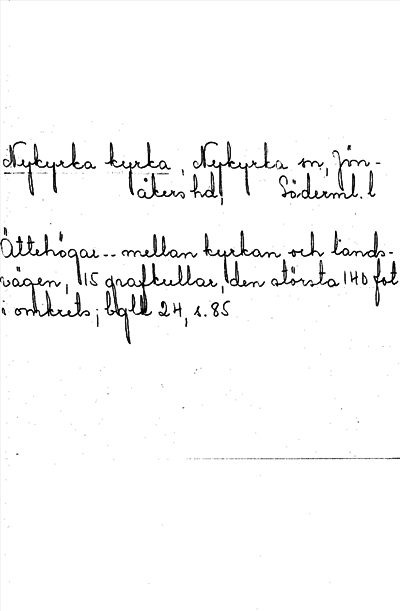 Nykyrka kyrka, Nykyrka sn, Jön-
åkers hd, Söderml. l
Ättehögar -- mellan kyrkan och lands-
vägen, 15 grafkullar, den största 140 fot
i omkrets; bgll 24, s. 85